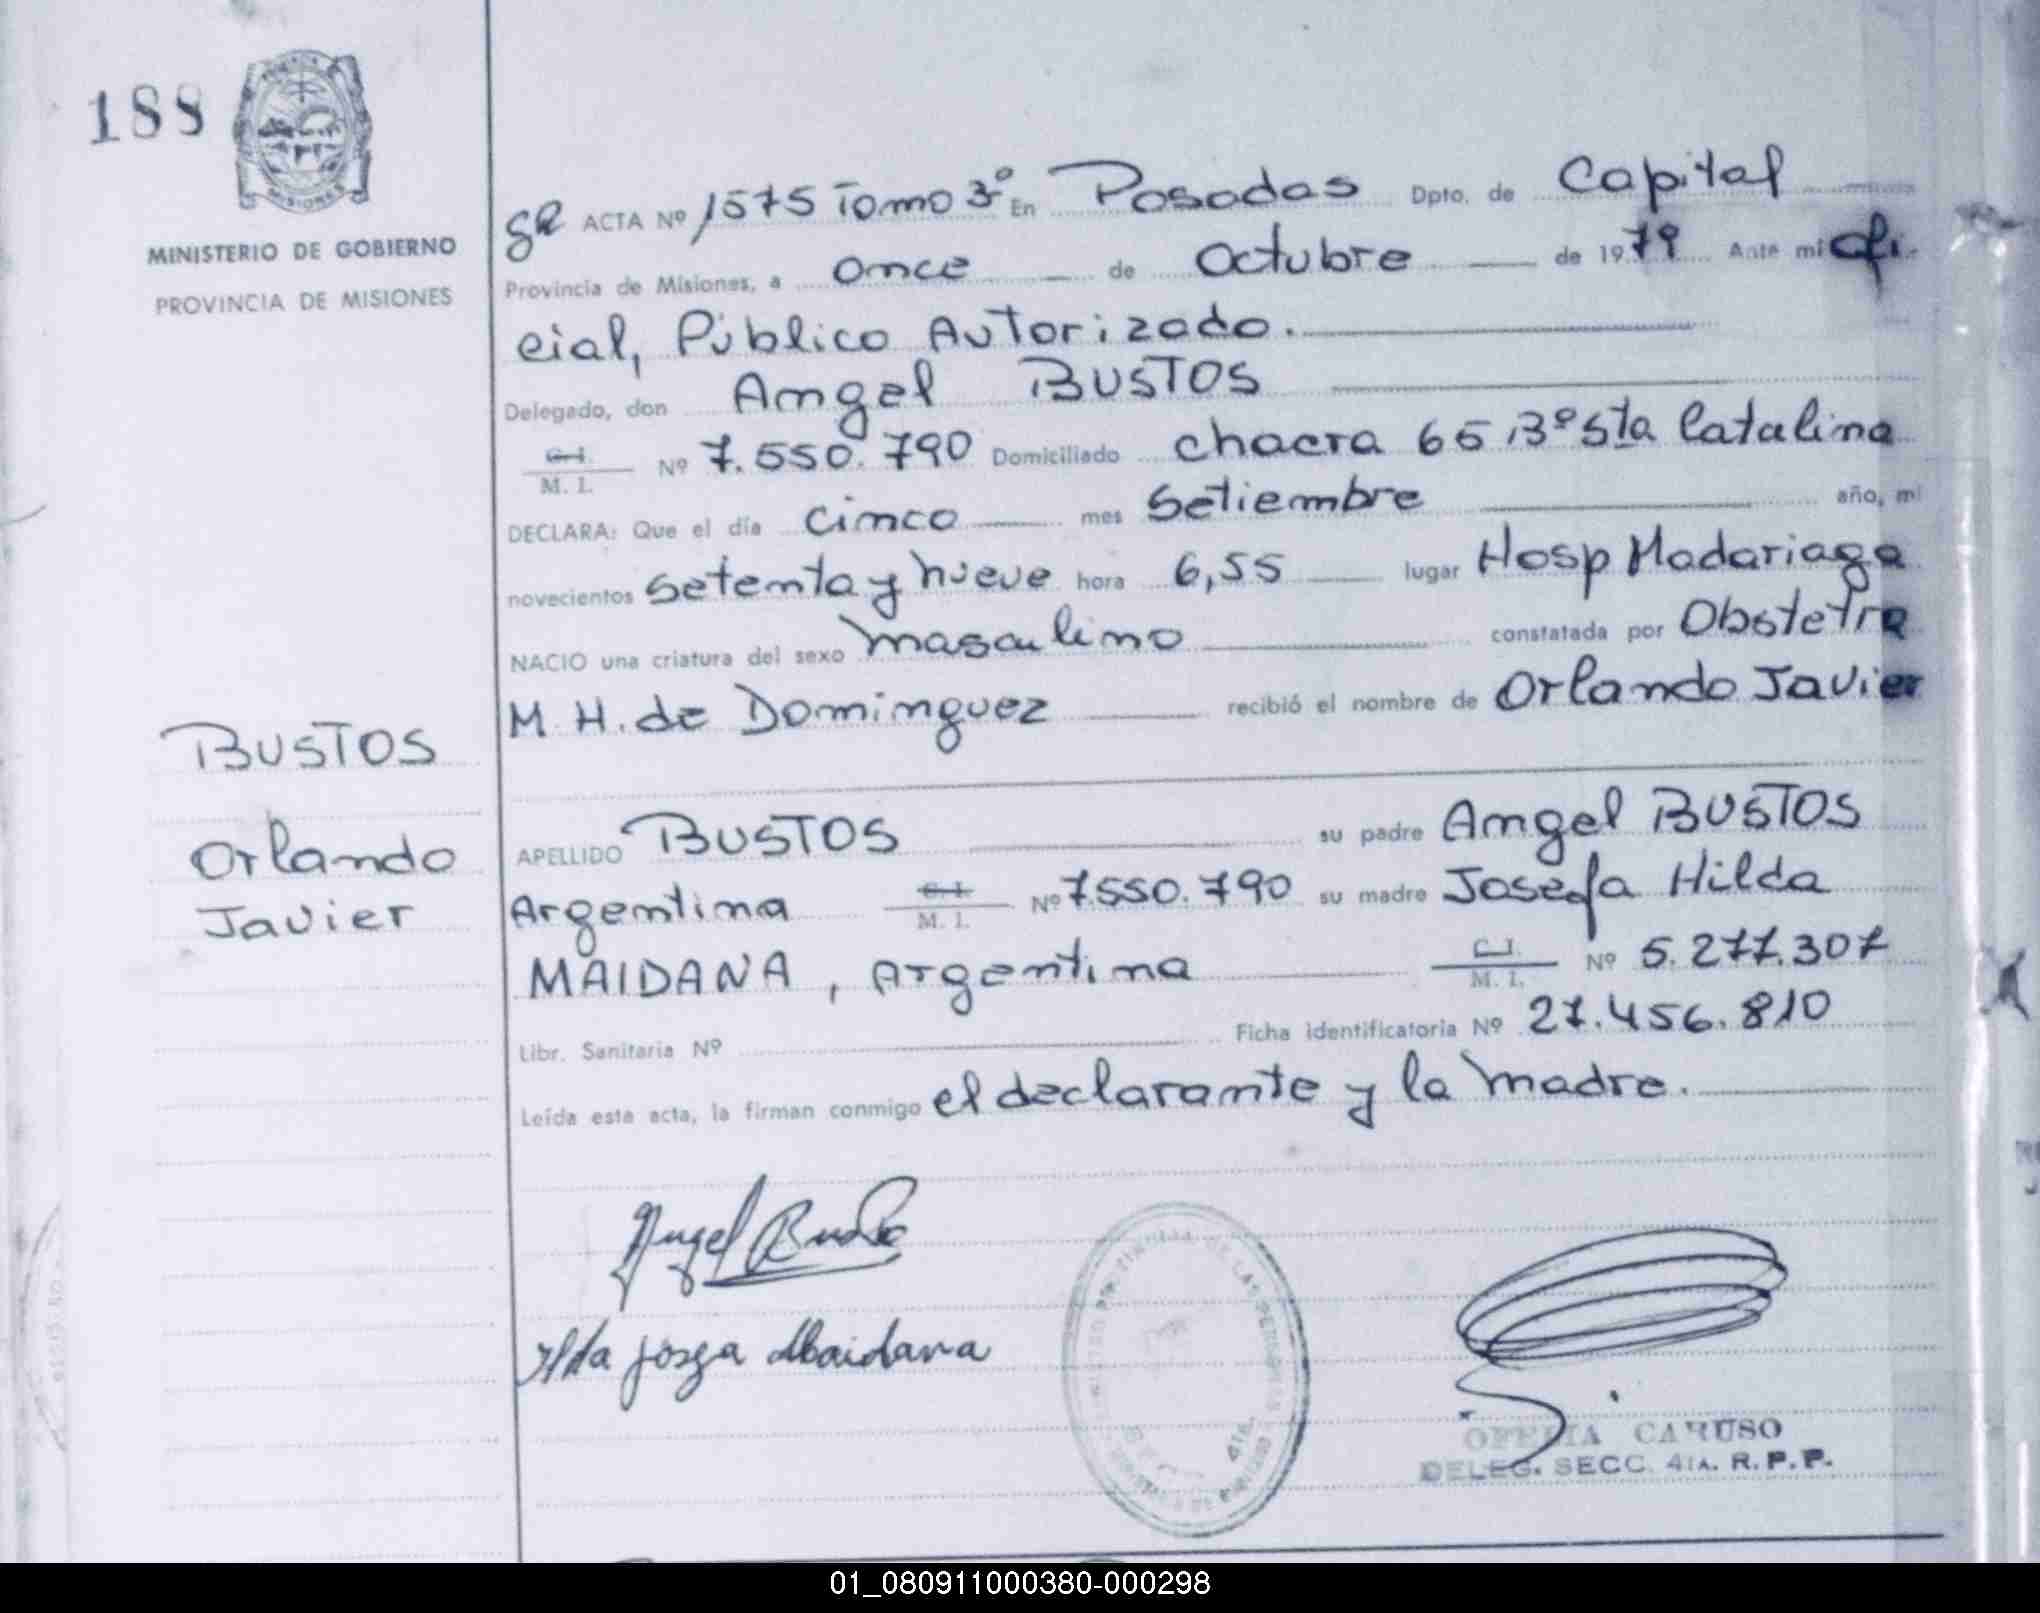 188
MINISTERIO DE GOBIERNO
PROVINCIA DE MISIONES
ACTA Nº 1575 Tomo 3º En Posadas Dpto. de Capital
Provincia de Misiones, a once de Octubre de 1979 Ante mi Ofi-
cial, Público Autorizado.
Delegado, don Angel BUSTOS
C. I. M. I. Nº 7.550.790 Domiciliado chacra 65 Bº Sta Catalina
DECLARA: Que el día cinco mes Setiembre año, mi
novecientos setenta y nueve hora 6,55 lugar Hosp Madariaga
NACIO una criatura del sexo masculino constatada por Obstetra
M. H. de Dominguez recibió el nombre de Orlando Javier
BUSTOS
Orlando
Javier
APELLIDO BUSTOS su padre Angel BUSTOS
Argentina C. I. M. I. Nº 7.550.790 su madre Josefa Hilda
MAIDANA, Argentina C. I. M. I. Nº 5.277.307
Libr. Sanitaria Nº Ficha identificatoria Nº 27.456.810
Leída esta acta, la firman conmigo el declarante y la madre.
Angel
Maidana
OFELIA CARUSO
DELEG. SECC. 4TA. R. P. P.
01_080911000380-000298